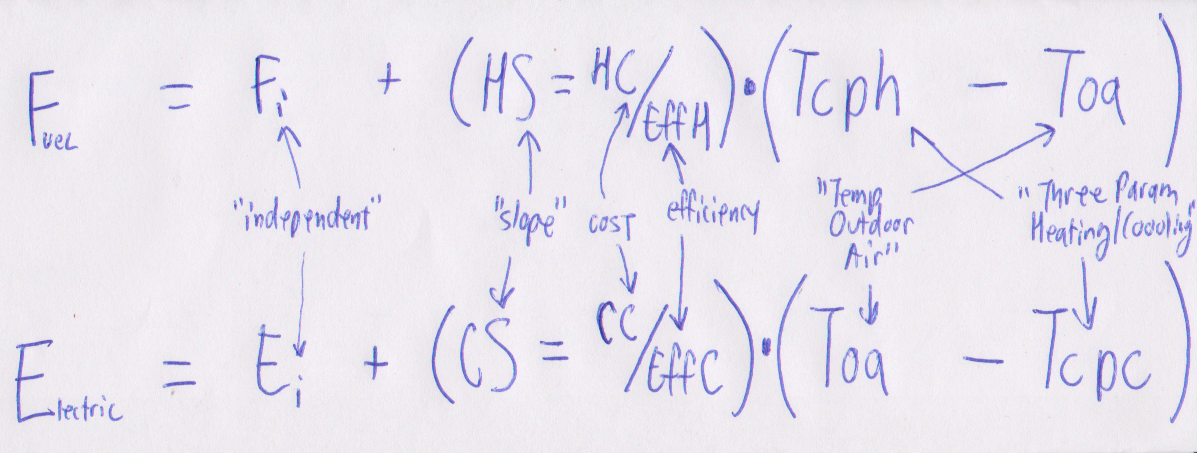 Fuel = Fi + (HS = HC/EffH) • (Tcph - Toa)
"independent" "slope" cost efficiency "Temp Outdoor Air" "Three Param Heating/Coooling"
Electric = Ei + (CS = CC/EffC) • (Toa - Tcpc)